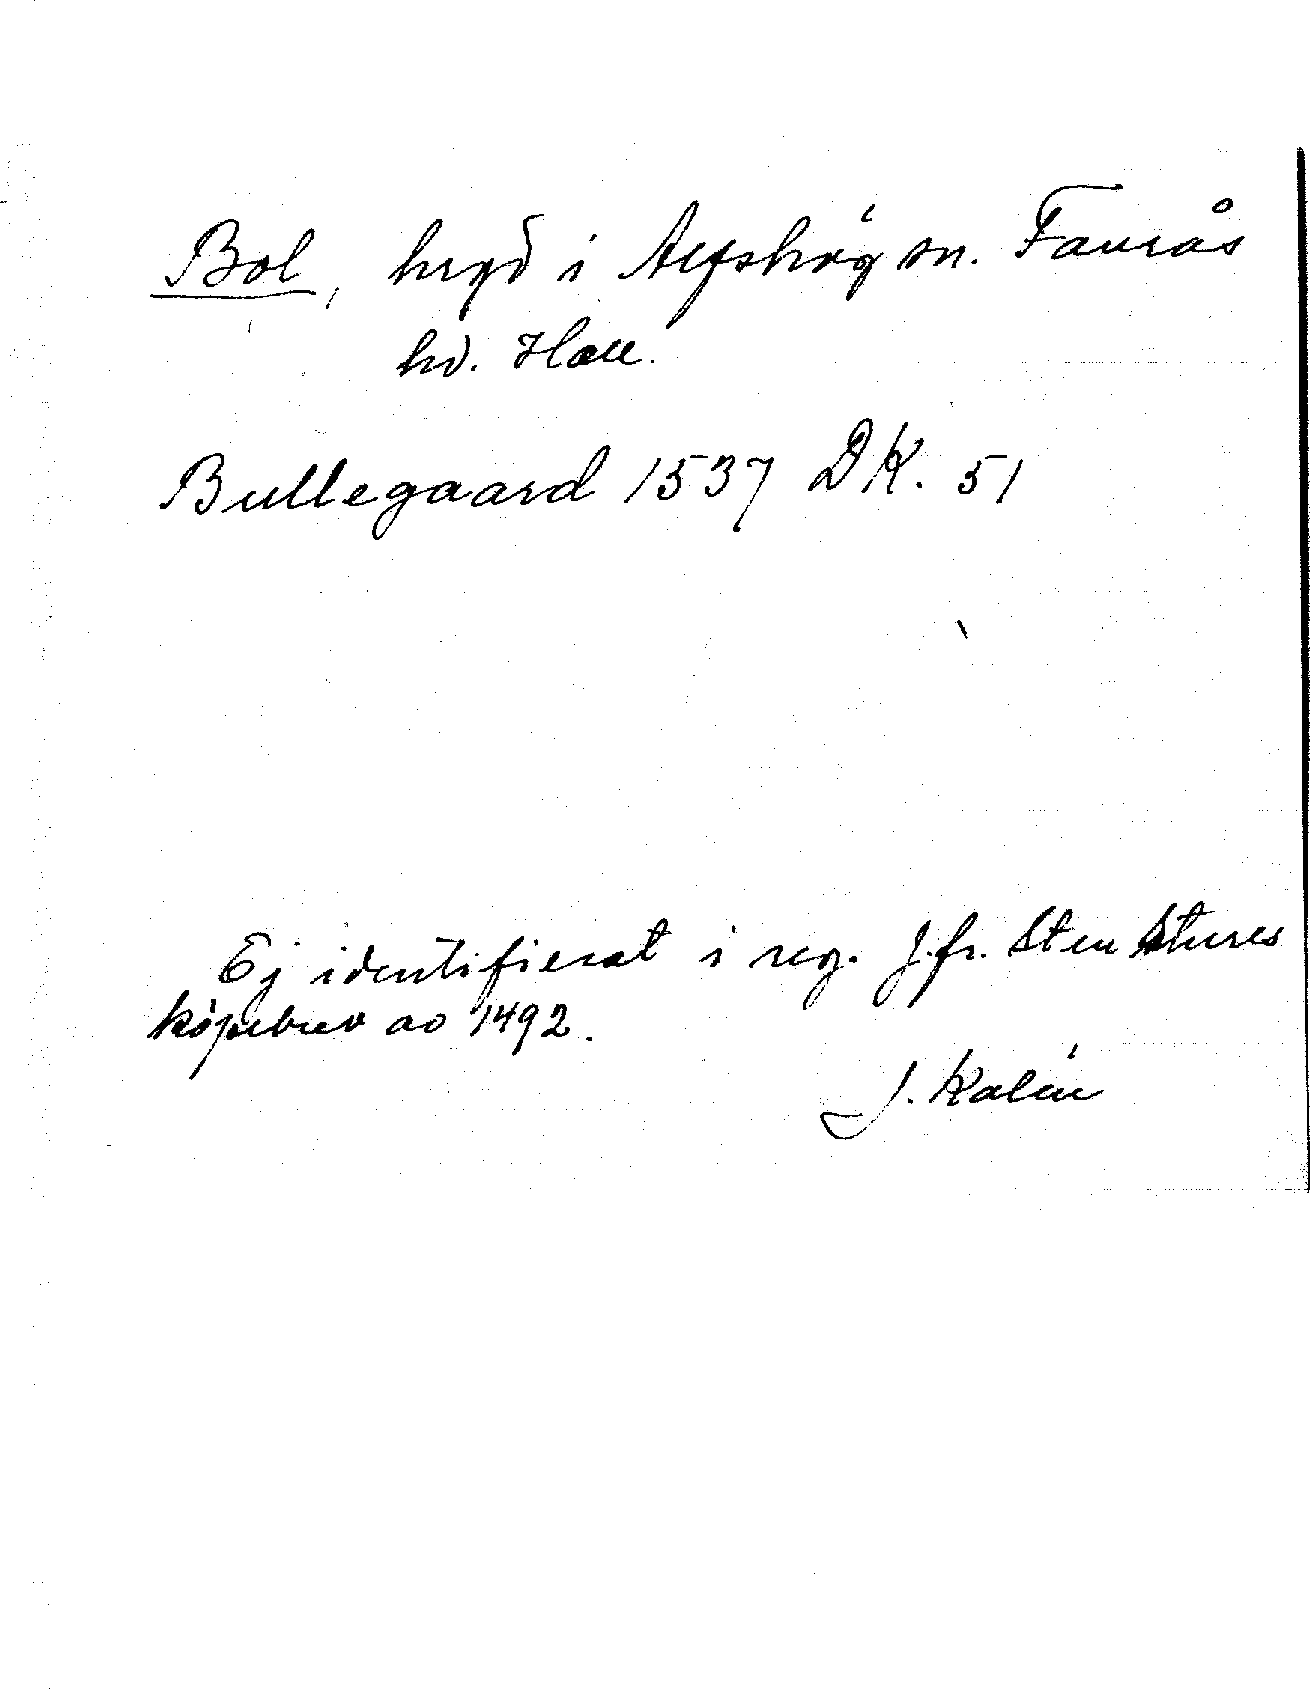 Bol, hrgd i Alfshög sn. Faurås
hd. Hall.
Bullegaard 1537 DK. 51
Ej identifierat i reg. J.fr. Sten Stures
köpebrev ao 1492.
J. Kalén